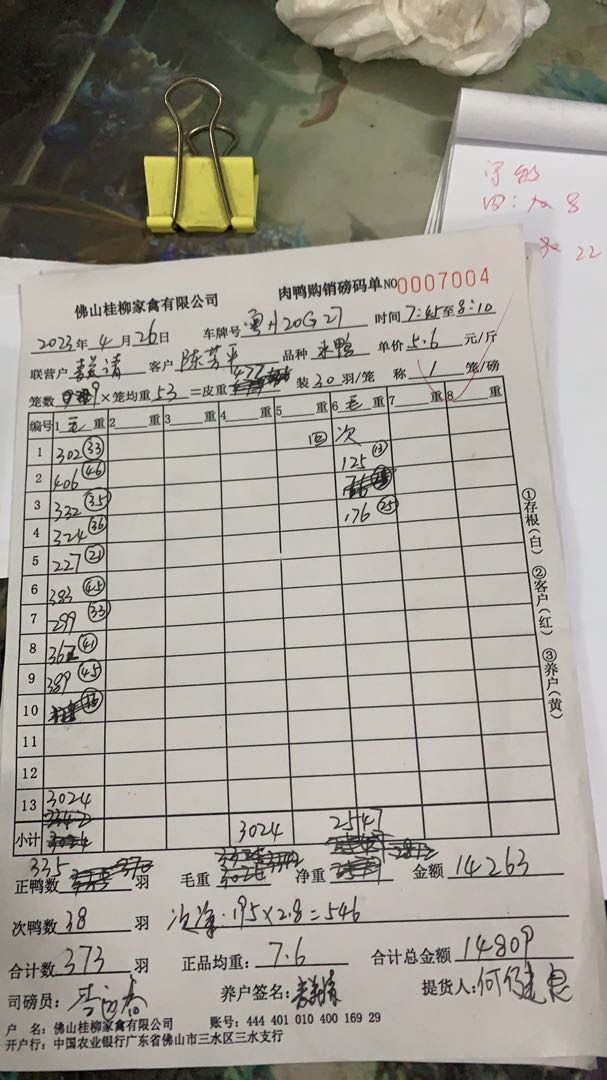 字
四:
22
佛山桂柳家禽有限公司 肉鸭购销磅码单 NO 0007004
2023年4月26日 车牌号 时间 7:45至8:10
联营户 客户 陈 平 品种 米鸭 单价 5.6 元/斤
笼数 9 ×笼均重 53 =皮重 477 装 30 羽/笼 称 1 笼/磅
编号 1 毛 重 2 重 3 重 4 重 5 重 6 毛 重 7 重 8 重
1 302 (33) 回 次
2 406 (46) 125 (13)
3 332 (35)
4 324 (36) 176 (25)
5 227 (21)
6 383 (45)
7 299 (33)
8 362 (41)
9 389 (45)
10
11
12
13 3024
小计 3024 2547
正鸭数 335 羽 毛重 净重 金额 14263
次鸭数 38 羽 次净:195×2.8=546
合计数 373 羽 正品均重: 7.6 合计总金额 14809
司磅员: 养户签名: 提货人: 何
户 名: 佛山桂柳家禽有限公司 账号: 444 401 010 400 169 29
开户行: 中国农业银行广东省佛山市三水区三水支行
①存根(白) ②客户(红) ③养户(黄)